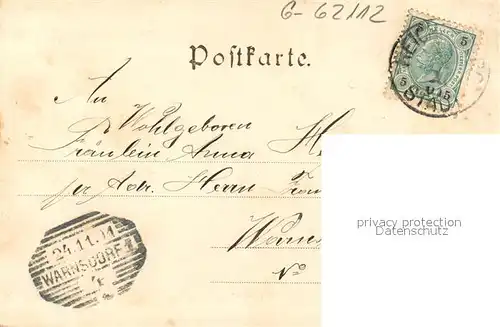 G-62112
Postkarte.
An
Wohlgeboren
Fräulein Anna H
per Adr. Herrn Fran
5 5
REICH
STAD
24.11.01
WARNSDORF
privacy protection
Datenschutz
No